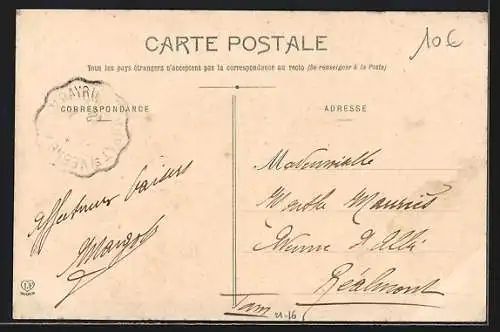 CARTE POSTALE
10€
Tous les pays étrangers n'acceptent pas la correspondance au recto (Se renseigner à la Poste)
CORRESPONDANCE
ADRESSE
Affectueux baisers
Margot
Mademoiselle
Marthe Mauriès
Avenue d'Albi
Réalmont
Tarn
21-16